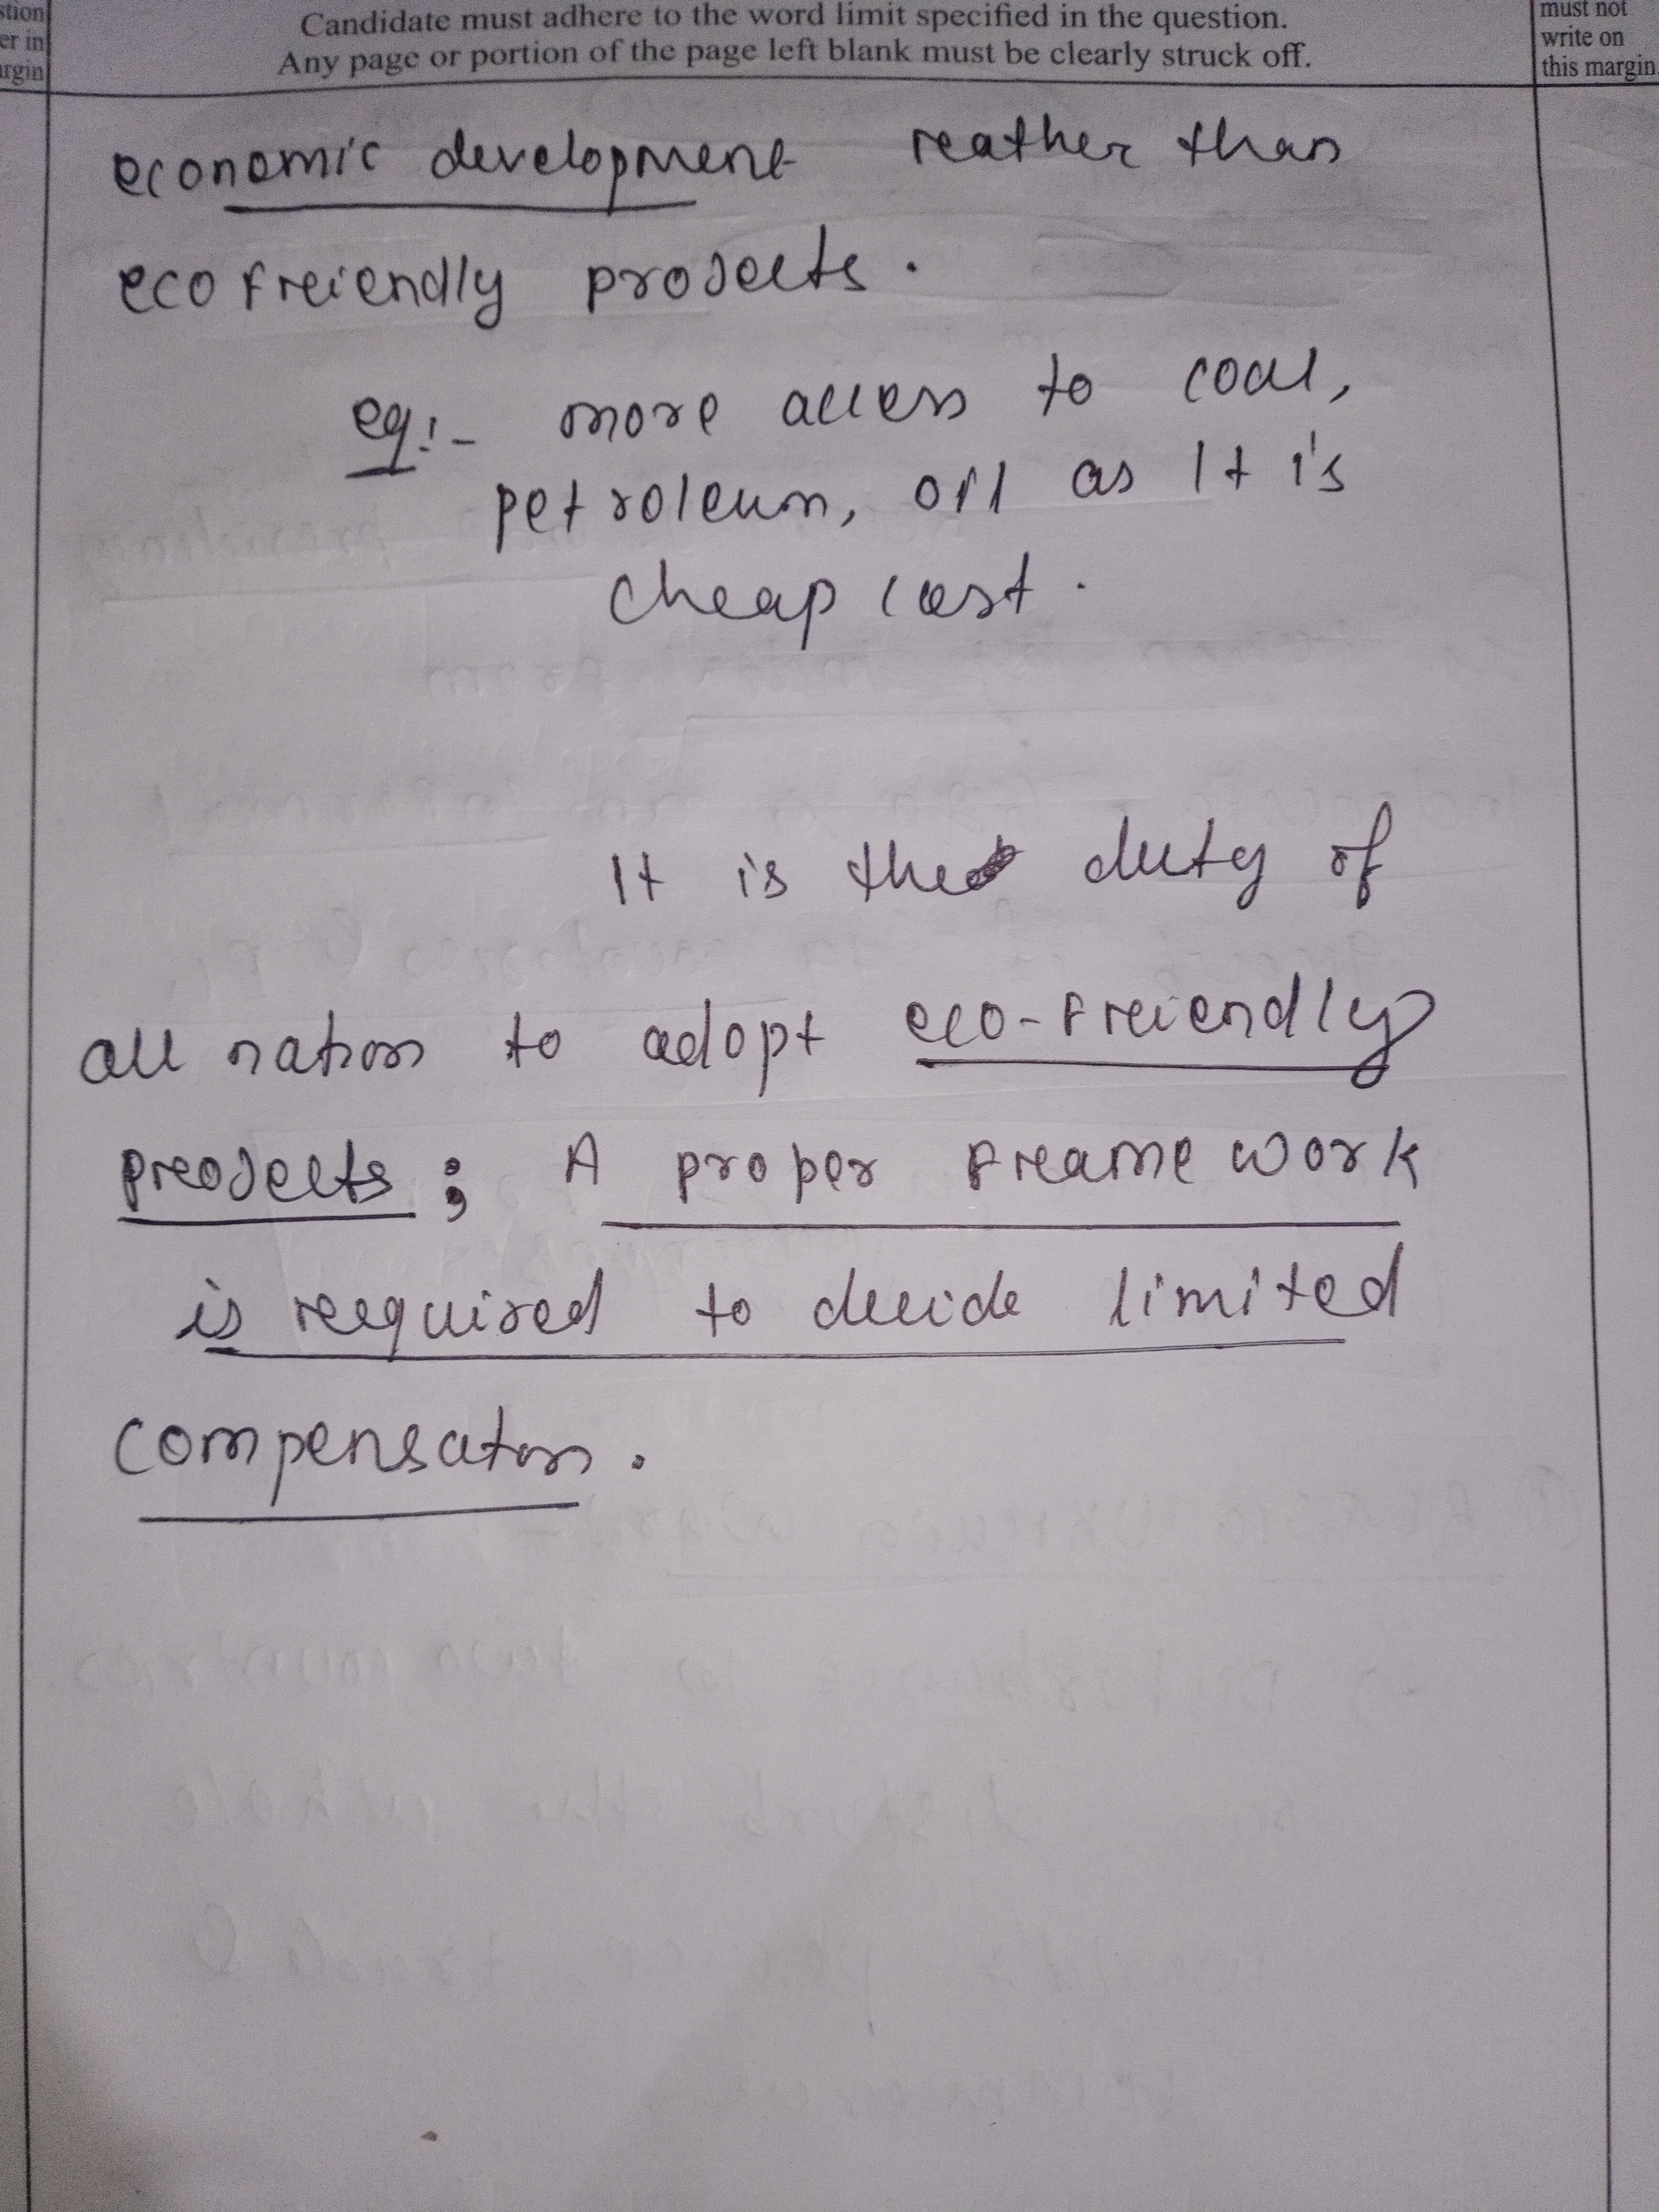 stion
er in
rgin
Candidate must adhere to the word limit specified in the question.
Any page or portion of the page left blank must be clearly struck off.
must not
write on
this margin
economic development reather than
eco freiendly projects.
eg:- more access to coal,
petroleum, oil as It is
cheap cost.
It is the duty of
all nation to adopt eco-freiendly
preojects; A proper freame work
is reequired to decide limited
compensation.